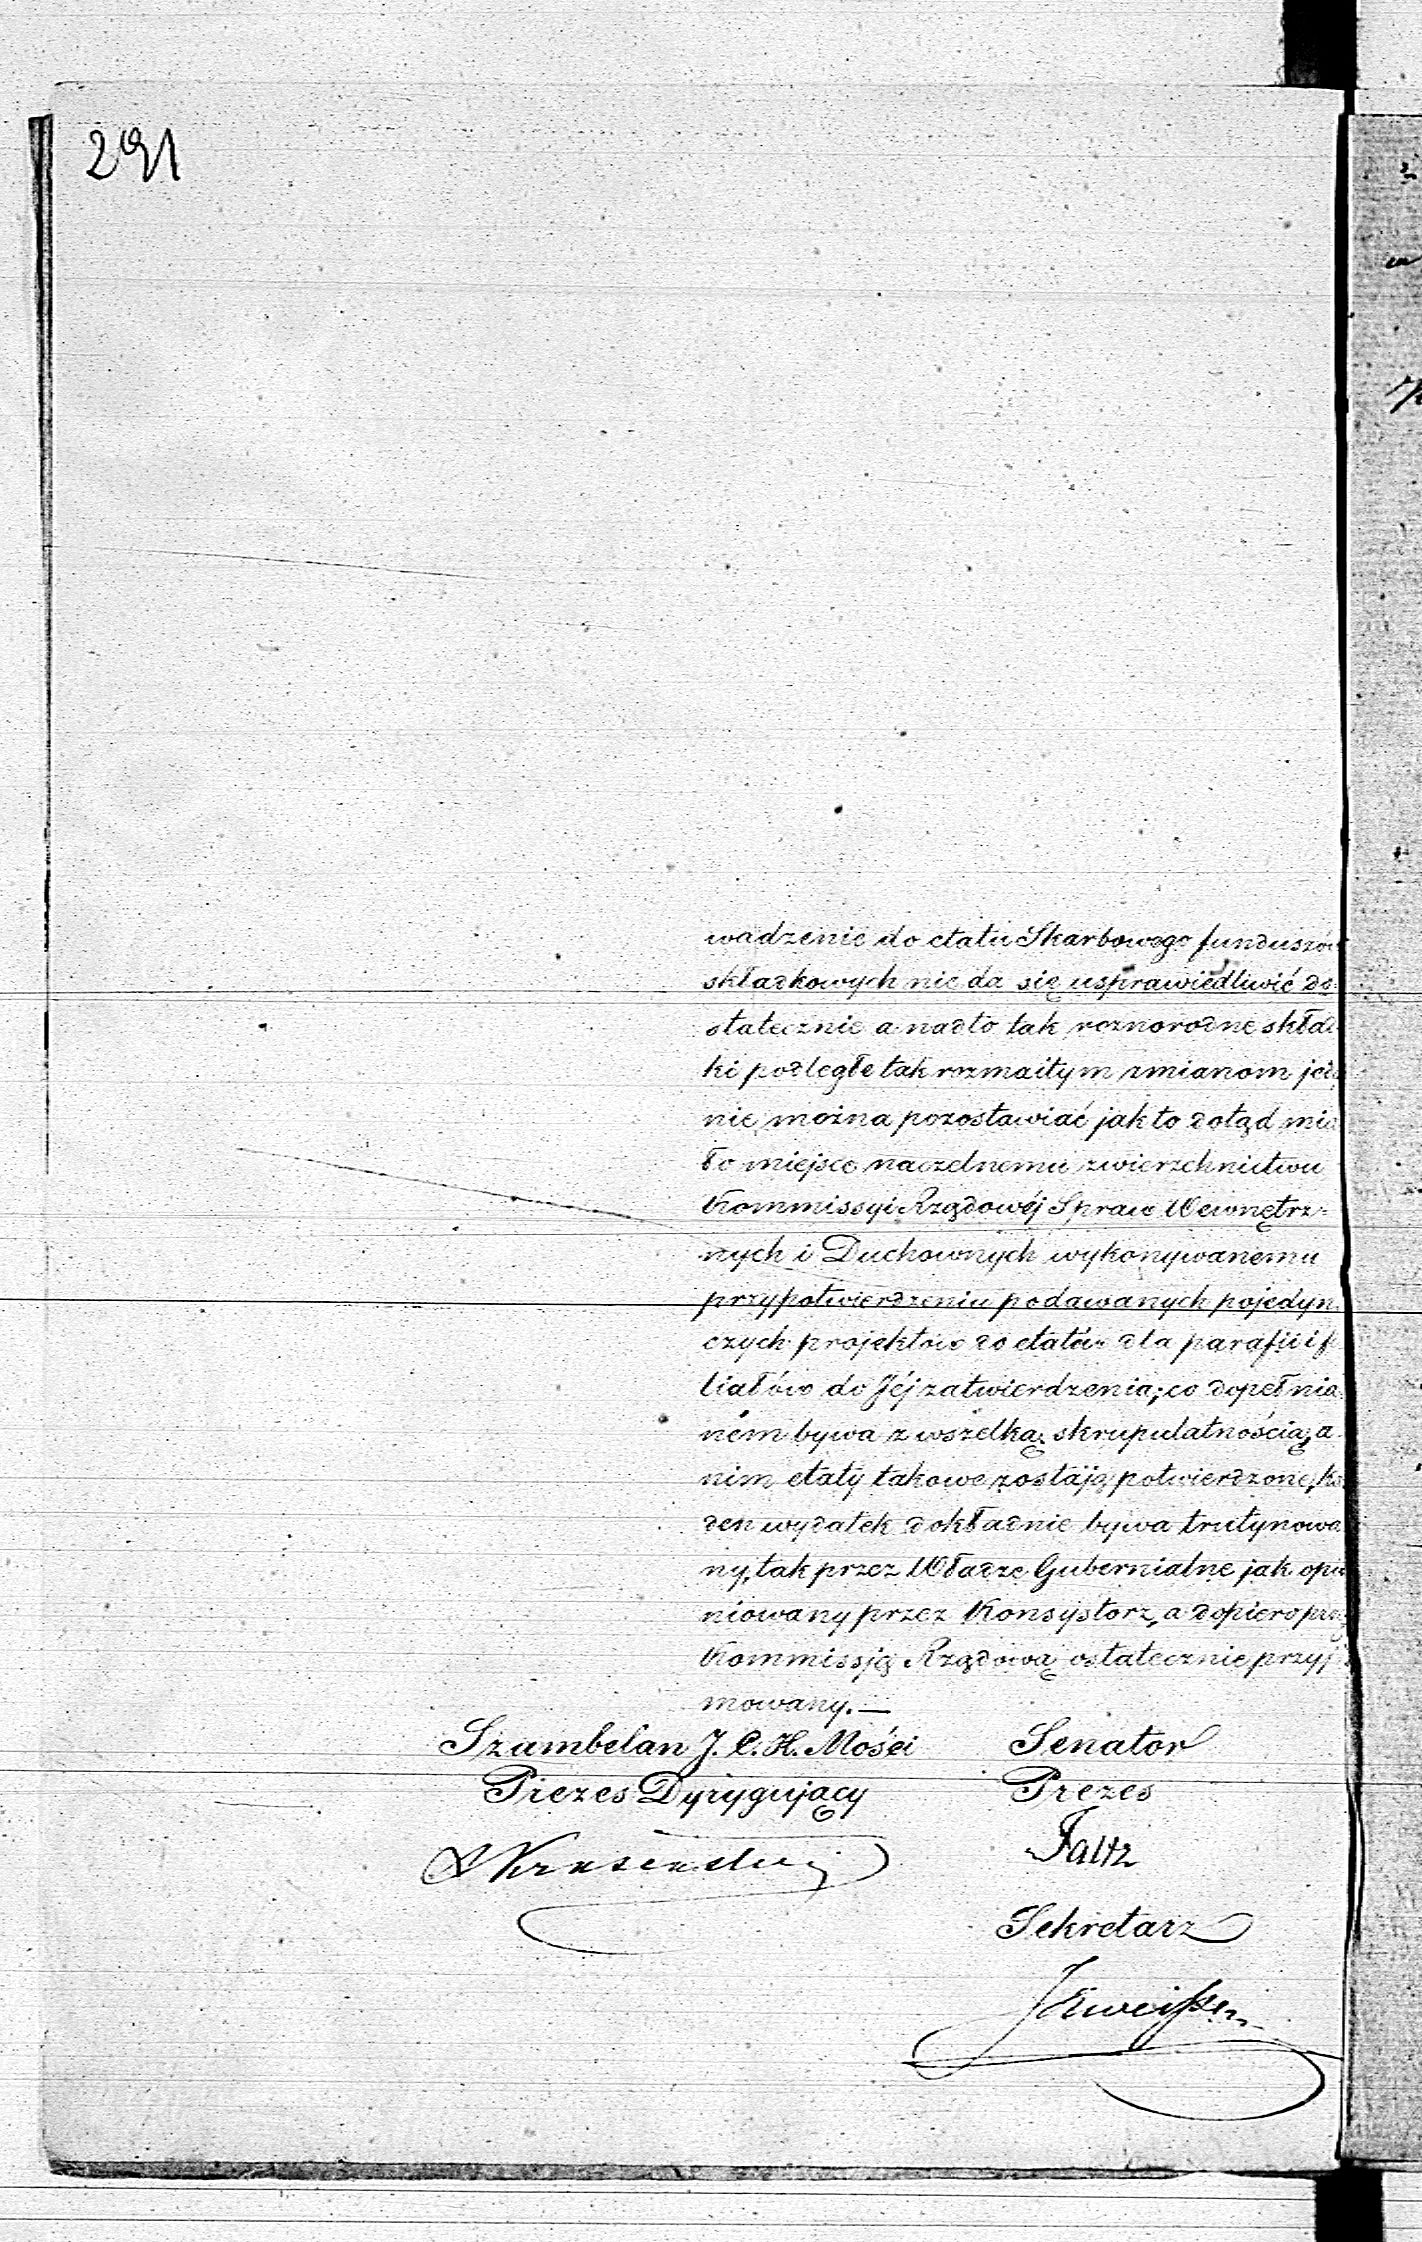 291
wadzenie do etatu Skarbowego funduszów
składkowych nie da się usprawiedliwić do-
statecznie a nadto tak roznorodne skład
ki podległe tak rozmaitym zmianom
nie można pozostawiać jak to dotąd mia
ło miejsce naczelnemu zwierzchnictwu
Kommissyi Rządowéj Spraw Wewnętrz-
nych i Duchownych wykonywanemu
przy potwierdzeniu podawanych pojedyn
czych projektów do etatów dla parafii i f
liałów do Jéj zatwierdzenia; co dopełnia
ném bywa z wszelką skrupulatnością, a
nim etaty takowe zostają potwierdzone, ka
den wydatek dokładnie bywa trutynowa
ny, tak przez Władze Gubernialne jak opi
niowany przez Konsystorz, a dopiero przez
Kommissją Rządową ostatecznie przyj
mowany. —
Szambelan J. C. K. Mości Senator
Prezes Dyrygujący Prezes
Faltz
Sekretarz